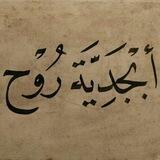 أَبْجَدِيَّة رُوْح